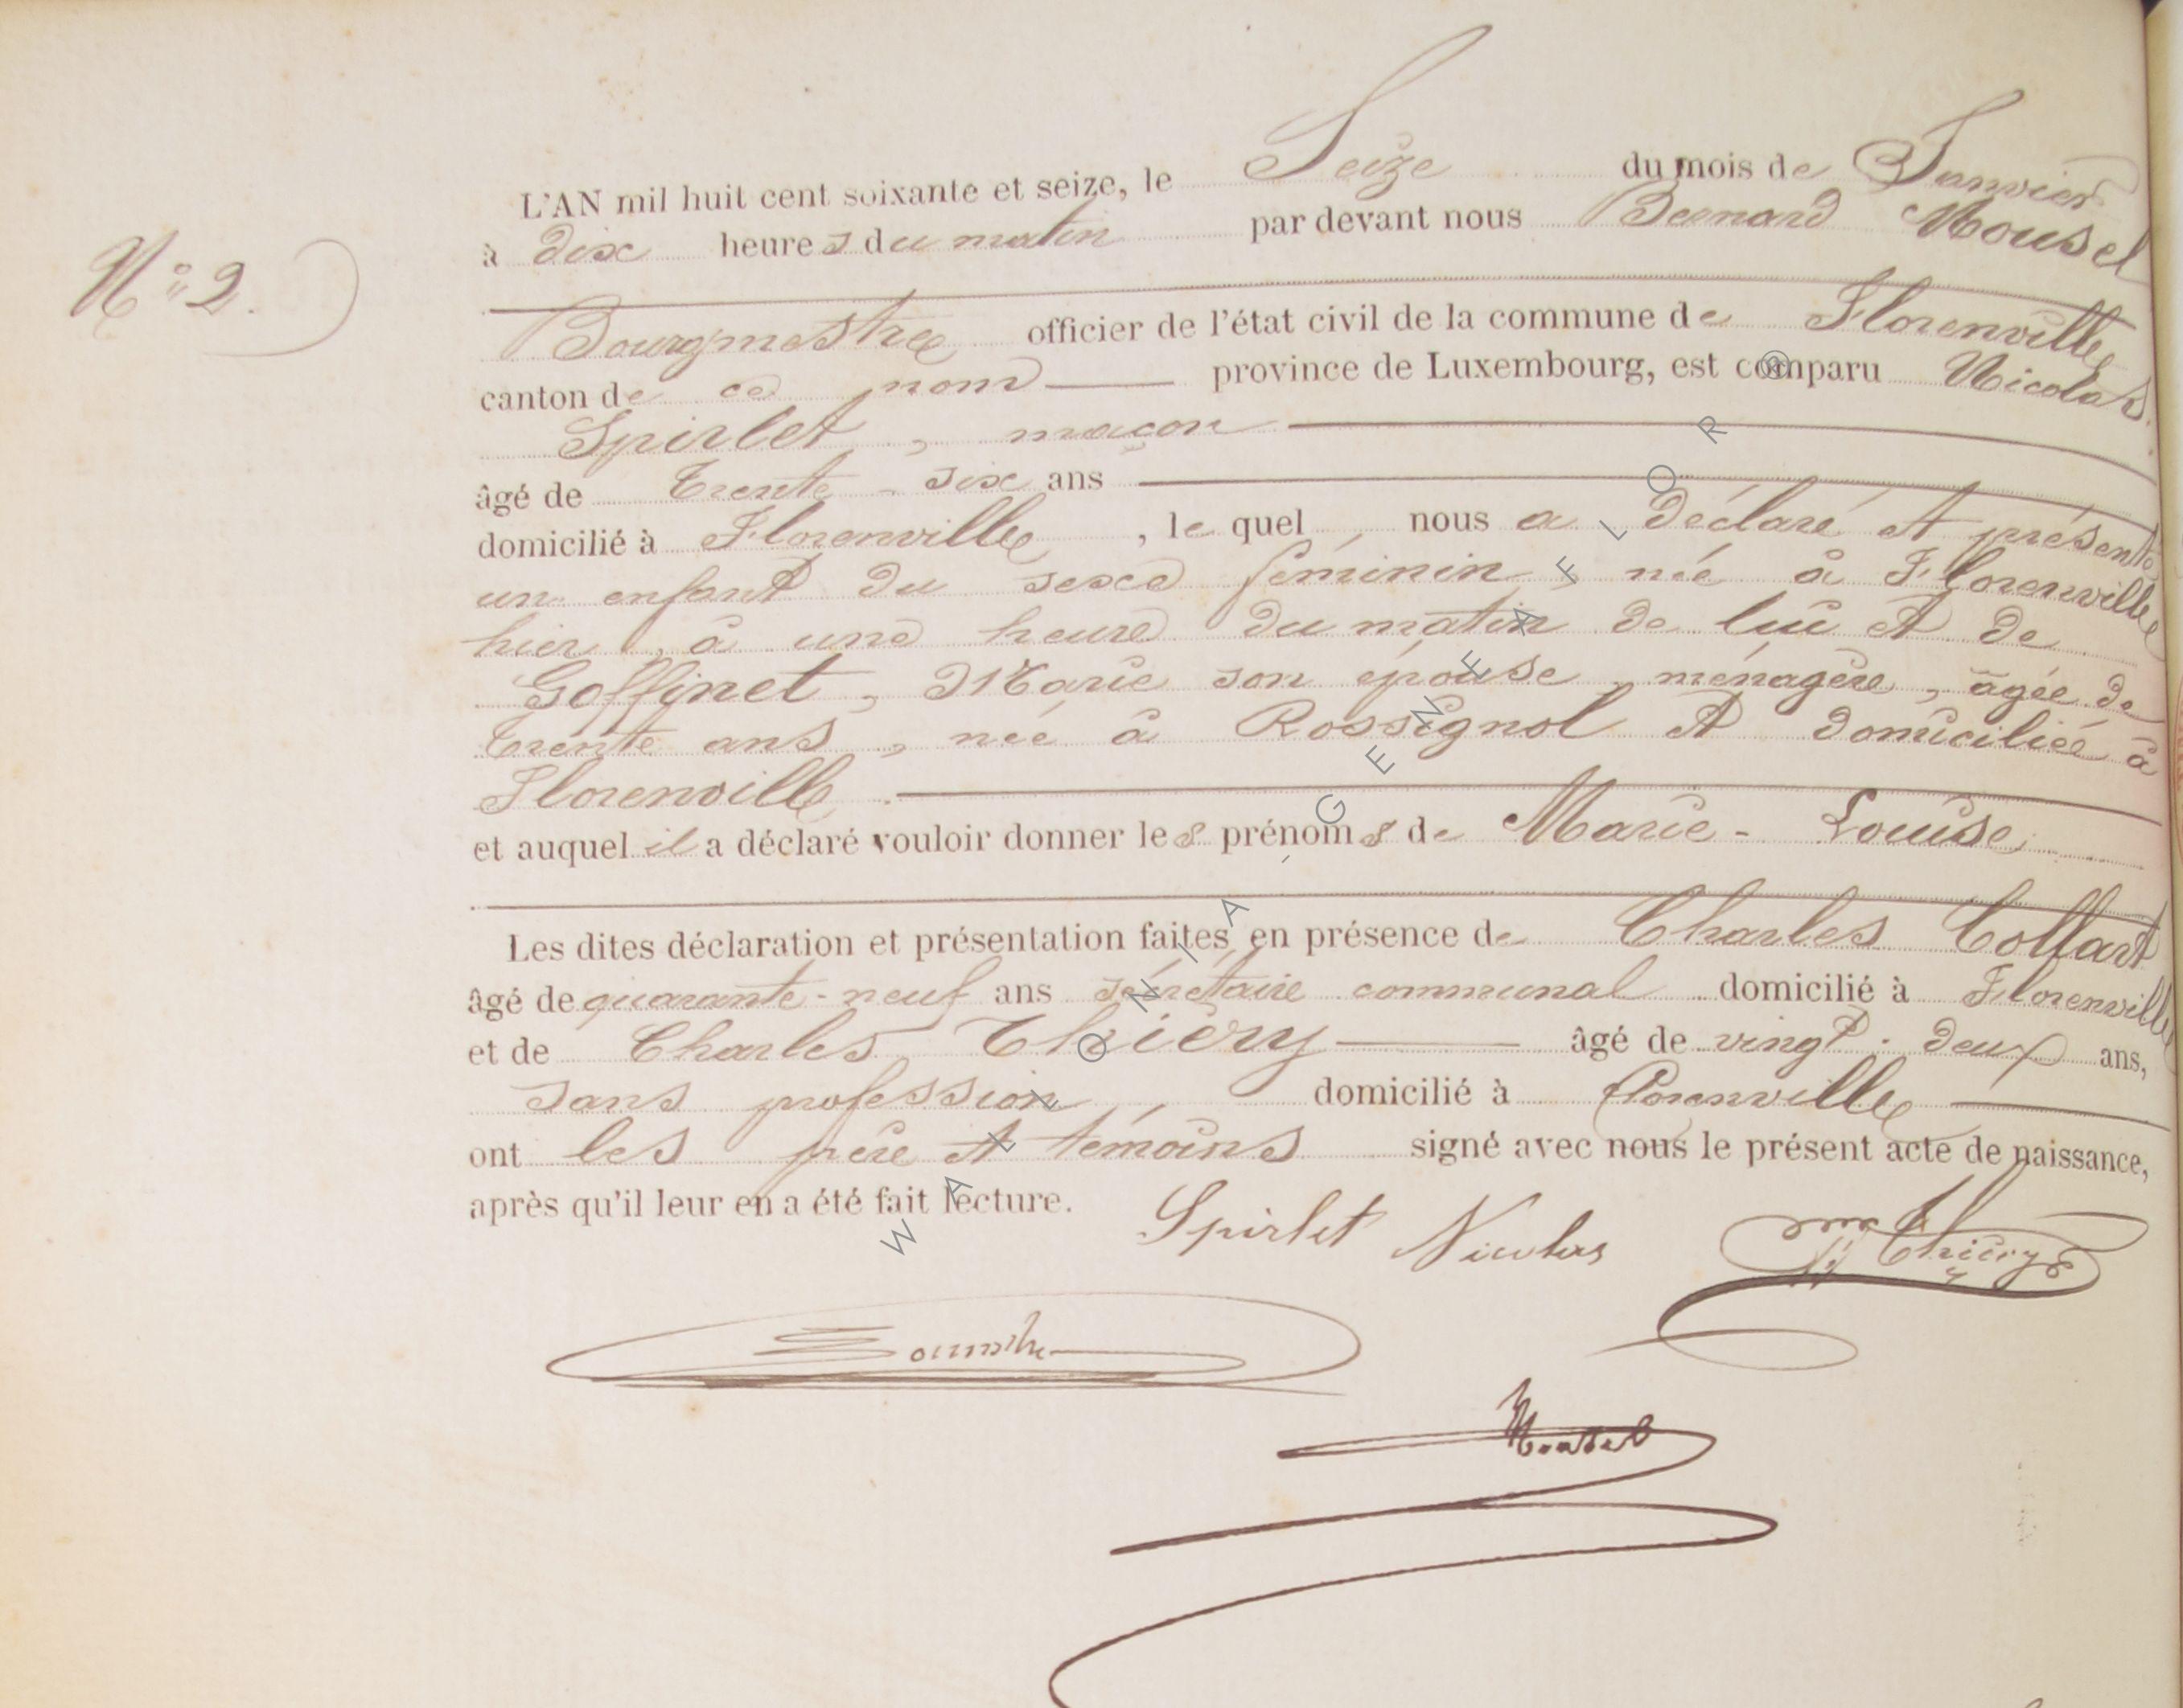 N° 2.
L'AN mil huit cent soixante et seize, le Seize du mois de Janvier
à dix heures du matin par devant nous Bernard Mousel
Bourgmestre officier de l'état civil de la commune de Florenville
canton de ce nom province de Luxembourg, est comparu Nicolas
Spirlet, maçon
âgé de trente-six ans
domicilié à Florenville, le quel, nous a déclaré et présenté
un enfant du sexe féminin, née à Florenville
hier, à une heure du matin de lui et de
Goffinet, Marie son épouse, ménagère, âgée de
trente ans, née à Rossignol et domiciliée à
Florenville.
et auquel il a déclaré vouloir donner les prénoms de Marie-Louise
Les dites déclaration et présentation faites en présence de Charles Collart
âgé de quarante-neuf ans sécrétaire communal domicilié à Florenville
et de Charles Thiéry âgé de vingt-deux ans,
sans profession, domicilié à Florenville
ont les père et témoins signé avec nous le présent acte de naissance,
après qu'il leur en a été fait lecture.
Spirlet Nicolas Thiéry
Mousel
WALLONIA, GENEAFLOR ®